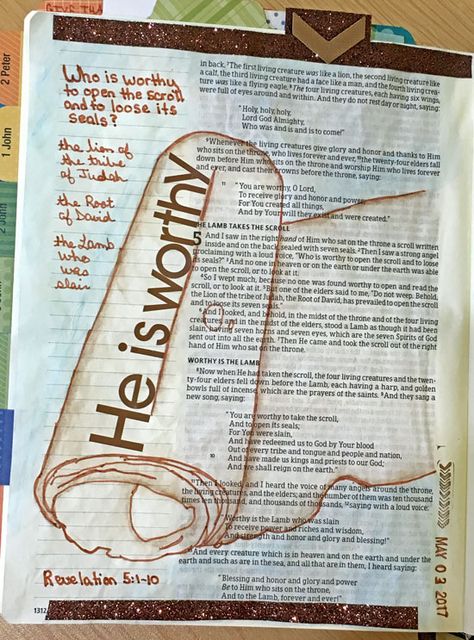 GIVE THA
2 Peter
1 John
2 John
Who is worthy
to open the scroll
and to loose its
seals?
the lion of
the tribe
of Judah
the Root
of David
the Lamb
who
was
slain
He is worthy
Revelation 5:1-10
1312
in back. 7The first living creature was like a lion, the second living creature like
a calf, the third living creature had a face like a man, and the fourth living crea-
ture was like a flying eagle. 8The four living creatures, each having six wings,
were full of eyes around and within. And they do not rest day or night, saying:
"Holy, holy, holy,
Lord God Almighty,
Who was and is and is to come!"
9Whenever the living creatures give glory and honor and thanks to Him
who sits on the throne, who lives forever and ever, 10the twenty-four elders fall
down before Him who sits on the throne and worship Him who lives forever
and ever, and cast their crowns before the throne, saying:
11 "You are worthy, O Lord,
To receive glory and honor and power;
For You created all things,
And by Your will they exist and were created."
THE LAMB TAKES THE SCROLL
5 And I saw in the right hand of Him who sat on the throne a scroll written
inside and on the back, sealed with seven seals. 2Then I saw a strong angel
proclaiming with a loud voice, "Who is worthy to open the scroll and to loose
its seals?" 3And no one in heaven or on the earth or under the earth was able
to open the scroll, or to look at it.
4So I wept much, because no one was found worthy to open and read the
scroll, or to look at it. 5But one of the elders said to me, "Do not weep. Behold,
the Lion of the tribe of Judah, the Root of David, has prevailed to open the scroll
and to loose its seven seals."
6And I looked, and behold, in the midst of the throne and of the four living
creatures, and in the midst of the elders, stood a Lamb as though it had been
slain, having seven horns and seven eyes, which are the seven Spirits of God
sent out into all the earth. 7Then He came and took the scroll out of the right
hand of Him who sat on the throne.
WORTHY IS THE LAMB
8Now when He had taken the scroll, the four living creatures and the twen-
ty-four elders fell down before the Lamb, each having a harp, and golden
bowls full of incense, which are the prayers of the saints. 9And they sang a
new song, saying:
"You are worthy to take the scroll,
And to open its seals;
For You were slain,
And have redeemed us to God by Your blood
Out of every tribe and tongue and people and nation,
10 And have made us kings and priests to our God;
And we shall reign on the earth."
11Then I looked, and I heard the voice of many angels around the throne,
the living creatures, and the elders; and the number of them was ten thousand
times ten thousand, and thousands of thousands, 12saying with a loud voice:
"Worthy is the Lamb who was slain
To receive power and riches and wisdom,
And strength and honor and glory and blessing!"
13And every creature which is in heaven and on the earth and under the
earth and such as are in the sea, and all that are in them, I heard saying:
"Blessing and honor and glory and power
Be to Him who sits on the throne,
And to the Lamb, forever and ever!"
MAY 03 2017